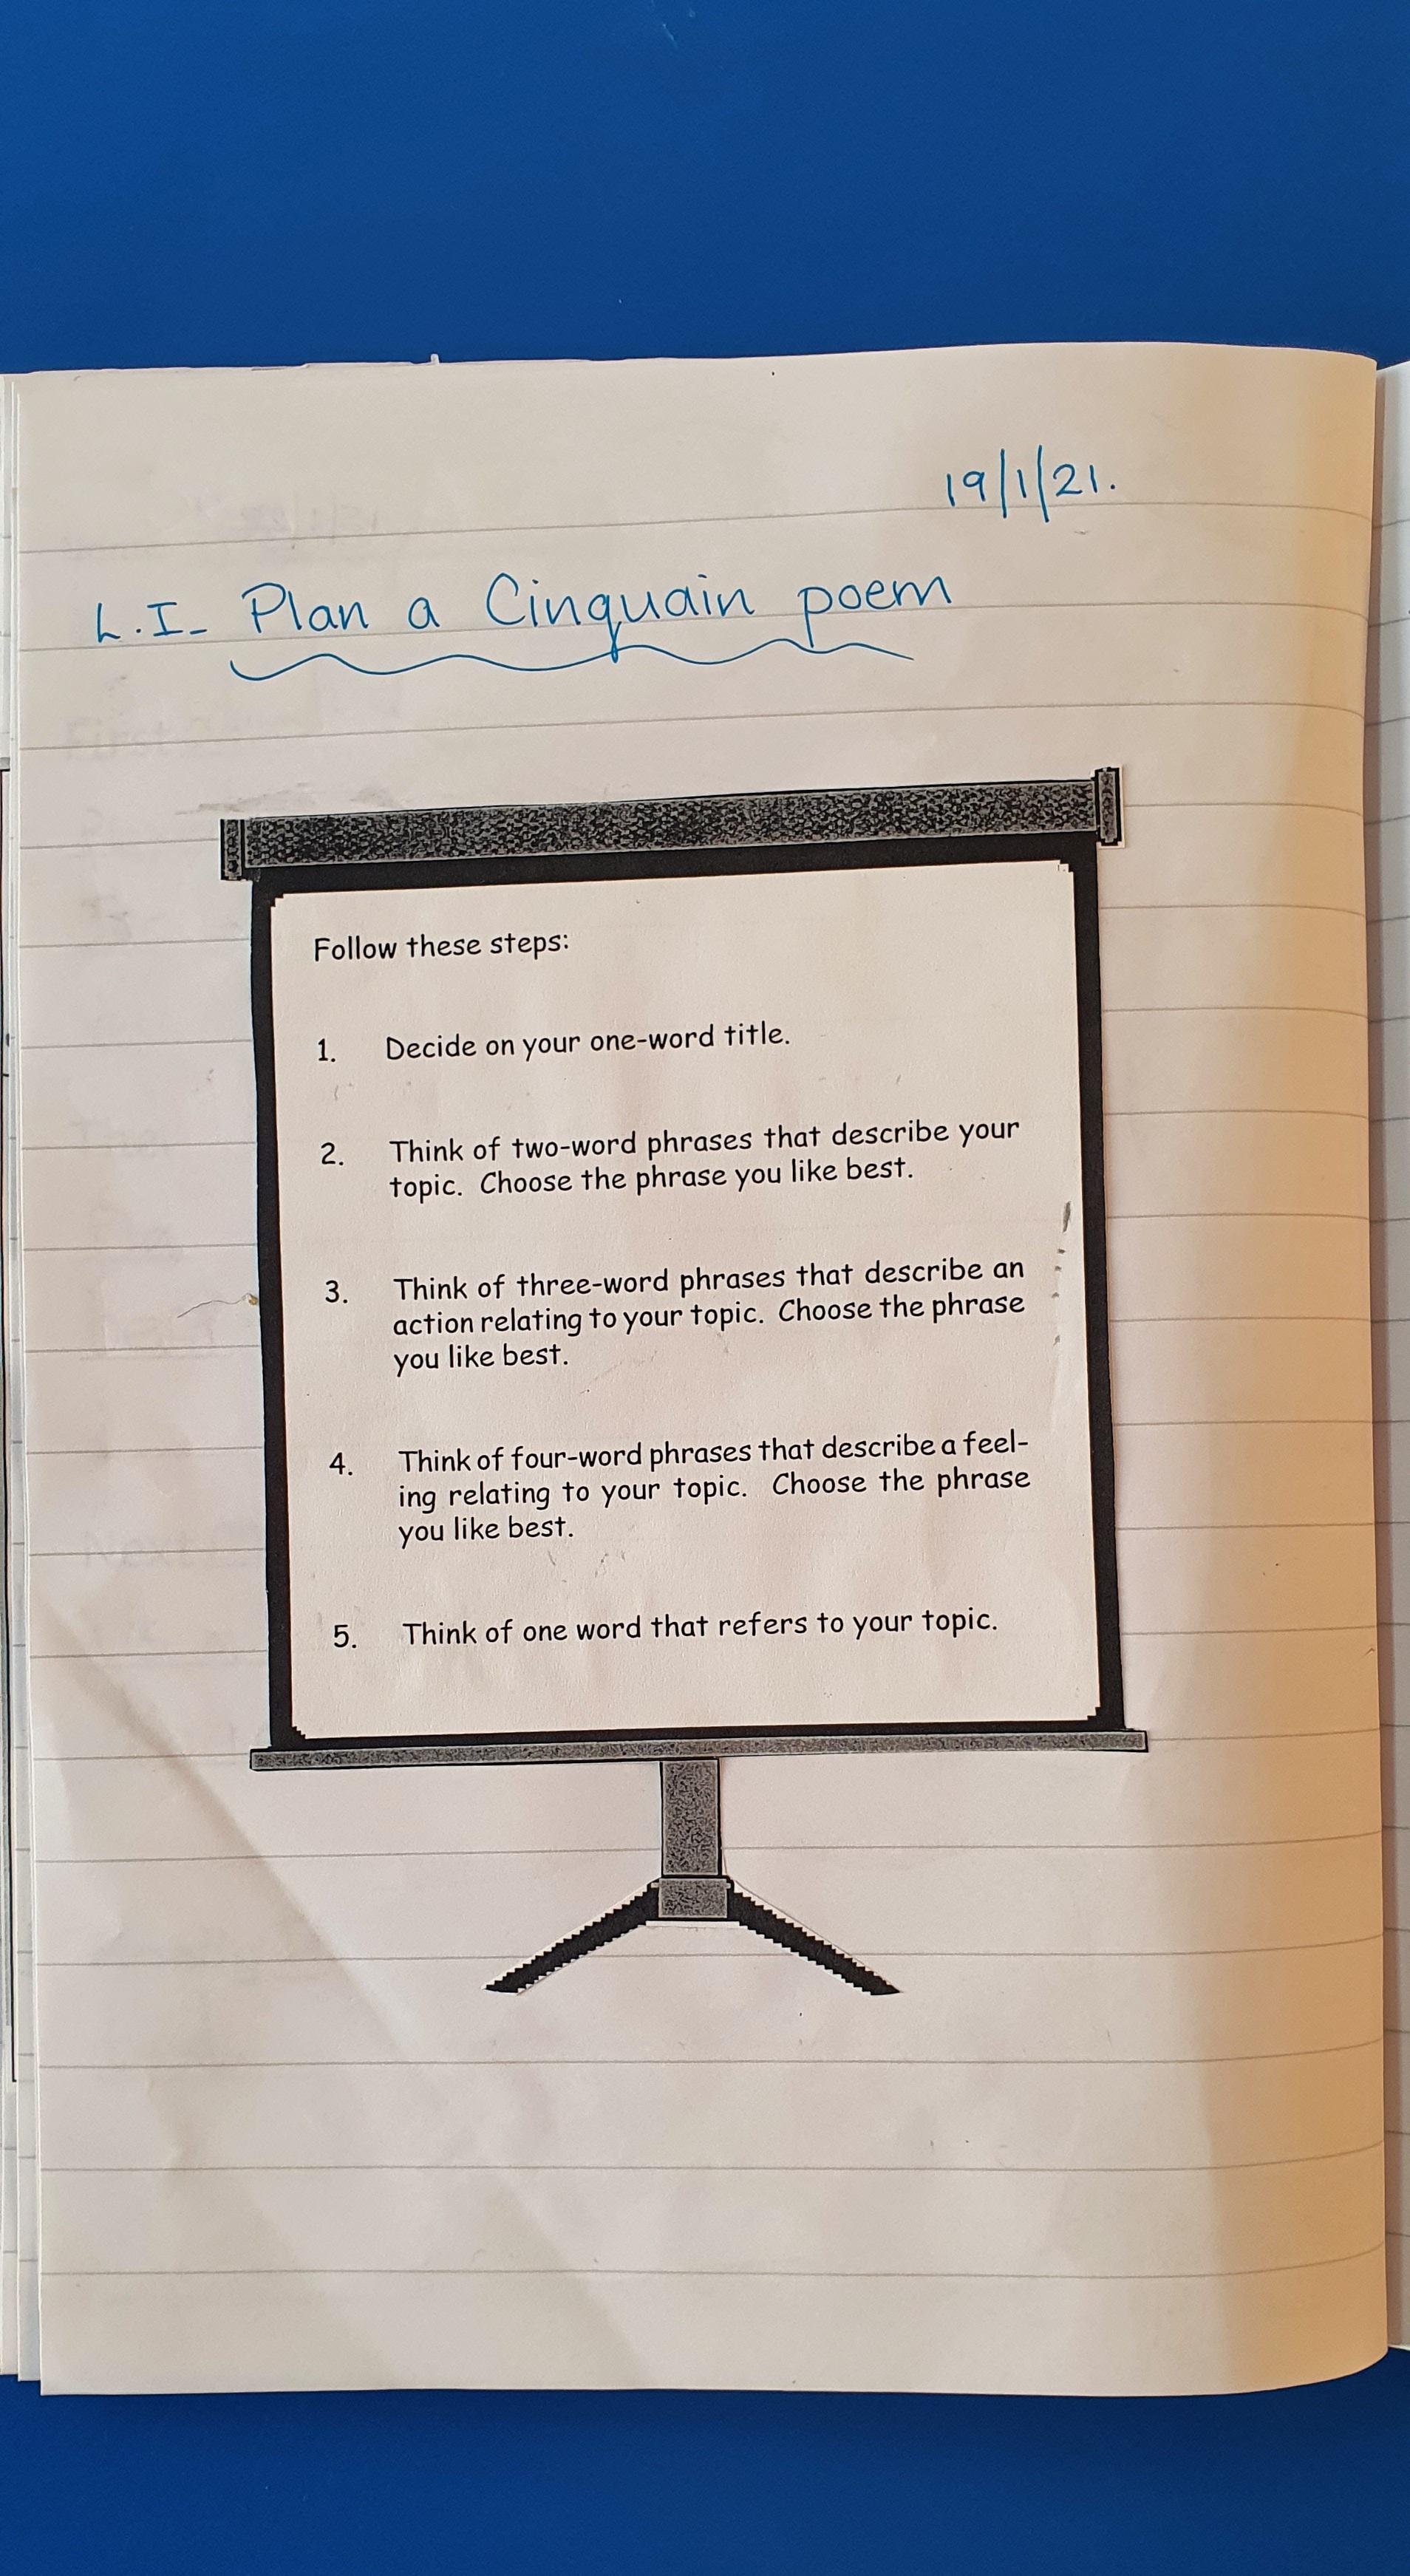 19/1/21.
L.I- Plan a Cinquain poem
Follow these steps:
1. Decide on your one-word title.
2. Think of two-word phrases that describe your
topic. Choose the phrase you like best.
3. Think of three-word phrases that describe an
action relating to your topic. Choose the phrase
you like best.
4. Think of four-word phrases that describe a feel-
ing relating to your topic. Choose the phrase
you like best.
5. Think of one word that refers to your topic.